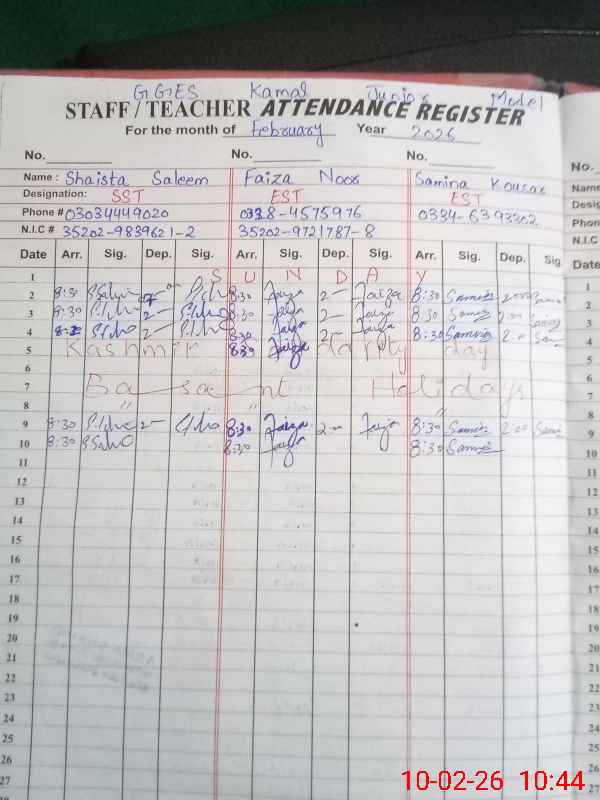 GGES Kamal Junior Model
STAFF/TEACHER ATTENDANCE REGISTER
For the month of February Year 2026
No. No. No.
Name: Shaista Saleem Faiza Noor Samina Kousar
Designation: SST EST EST
Phone # 03034449020 0328-4575976 0334-6393302
N.I.C # 35202-9839621-2 35202-9721787-8
Date Arr. Sig. Dep. Sig. Arr. Sig. Dep. Sig. Arr. Sig. Dep. Sig.
1 S U N D A Y
2 8:30 2- 8:30 Faiza 2- Faiza 8:30 Samina 2:00
3 8:30 2- 8:30 Faiza 2- Faiza 8:30 Samina 2:00
4 8:30 2- 8:30 Faiza 2- Faiza 8:30 Samina 2:00
5 Kashmir 8:30 Faiza day
6
7 Basant Holidays
8 " "
9 8:30 2- 8:30 Faiza 2- Faiza 8:30 Samina 2:00
10 8:30 8:30 Faiza 8:30 Samina
11
12
13
14
15
16
17
18
19
20
21
22
23
24
25
26
27
No.
Name
Desig
Phone
N.I.C
Date
1
2
3
4
5
6
7
8
9
10
11
12
13
14
15
16
17
18
19
20
21
22
23
24
25
26
27
10-02-26 10:44